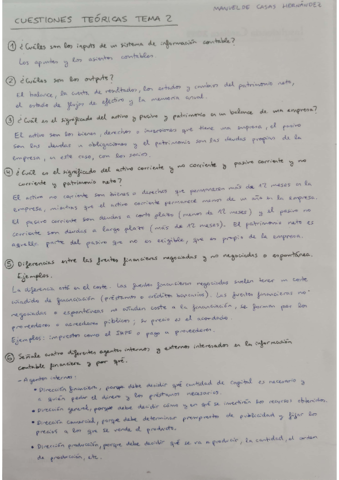 MANUEL DE CASAS HERNÁNDEZ
CUESTIONES TEÓRICAS TEMA 2
① ¿Cuáles son los inputs de un sistema de información contable?
Los apuntes y los asientos contables.
② ¿Cuáles son los outputs?
El balance, la cuenta de resultados, los estados y cambios del patrimonio neto,
el estado de flujos de efectivo y la memoria anual.
③ ¿Cuál es el significado del activo y pasivo y patrimonio en un balance de una empresa?
El activo son los bienes, derechos o inversiones que tiene una empresa, el pasivo
son las deudas u obligaciones y el patrimonio son los fondos propios de la
empresa, en este caso, con los socios.
④ ¿Cuál es el significado del activo corriente y no corriente y pasivo corriente y no
corriente y patrimonio neto?
El activo no corriente son bienes o derechos que permanecen más de 12 meses en la
empresa, mientras que el activo corriente permanece menos de un año en la empresa.
El pasivo corriente son deudas a corto plazo (menos de 12 meses) y el pasivo no
corriente son deudas a largo plazo (más de 12 meses). El patrimonio neto es
aquella parte del pasivo que no es exigible, que es propio de la empresa.
⑤ Diferencias entre las fuentes financieras negociadas y no negociadas o espontáneas.
Ejemplos.
La diferencia está en el coste. Las fuentes financieras negociadas suelen tener un coste
añadido de financiación (préstamos o créditos bancarios). Las fuentes financieras no
negociadas o espontáneas no añaden coste a la financiación, se forman por los
proveedores o acreedores públicos;
Ejemplos: impuestos como el IVA o pago a proveedores.
⑥ Señala cuatro diferentes agentes internos y externos interesados en la información
contable financiera y por qué.
- Agentes internos:
• Dirección financiera, porque debe decidir qué cantidad de capital es necesario y
a quién pedir el dinero y los préstamos necesarios.
• Dirección general, porque debe decidir cómo y en qué se invertirán los recursos obtenidos.
• Dirección comercial, porque debe determinar presupuestos de publicidad y fijar los
precios a los que se vende el producto.
• Dirección producción, porque debe decidir qué se va a producir, la cantidad, el orden
de producción, etc.